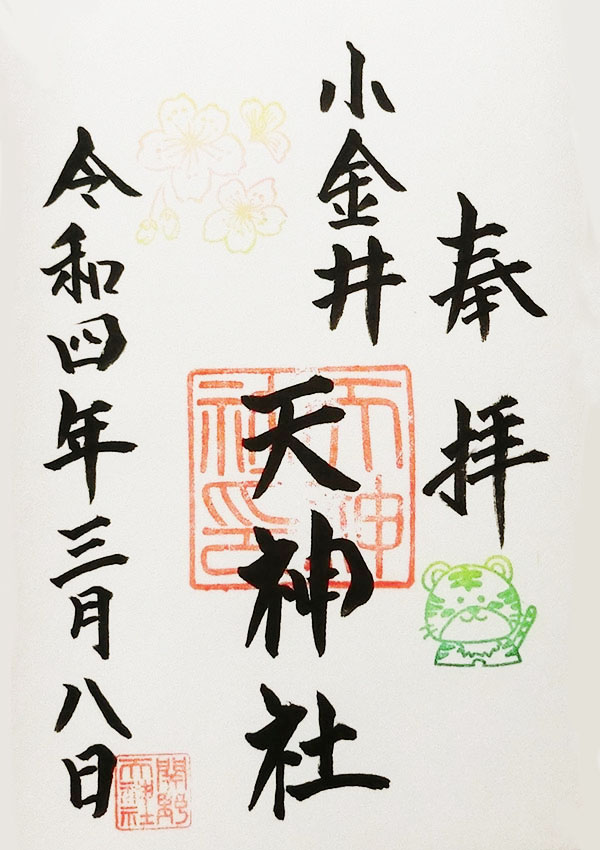 奉拝
小金井
天神社
令和四年三月八日
天神社印
関野天神社